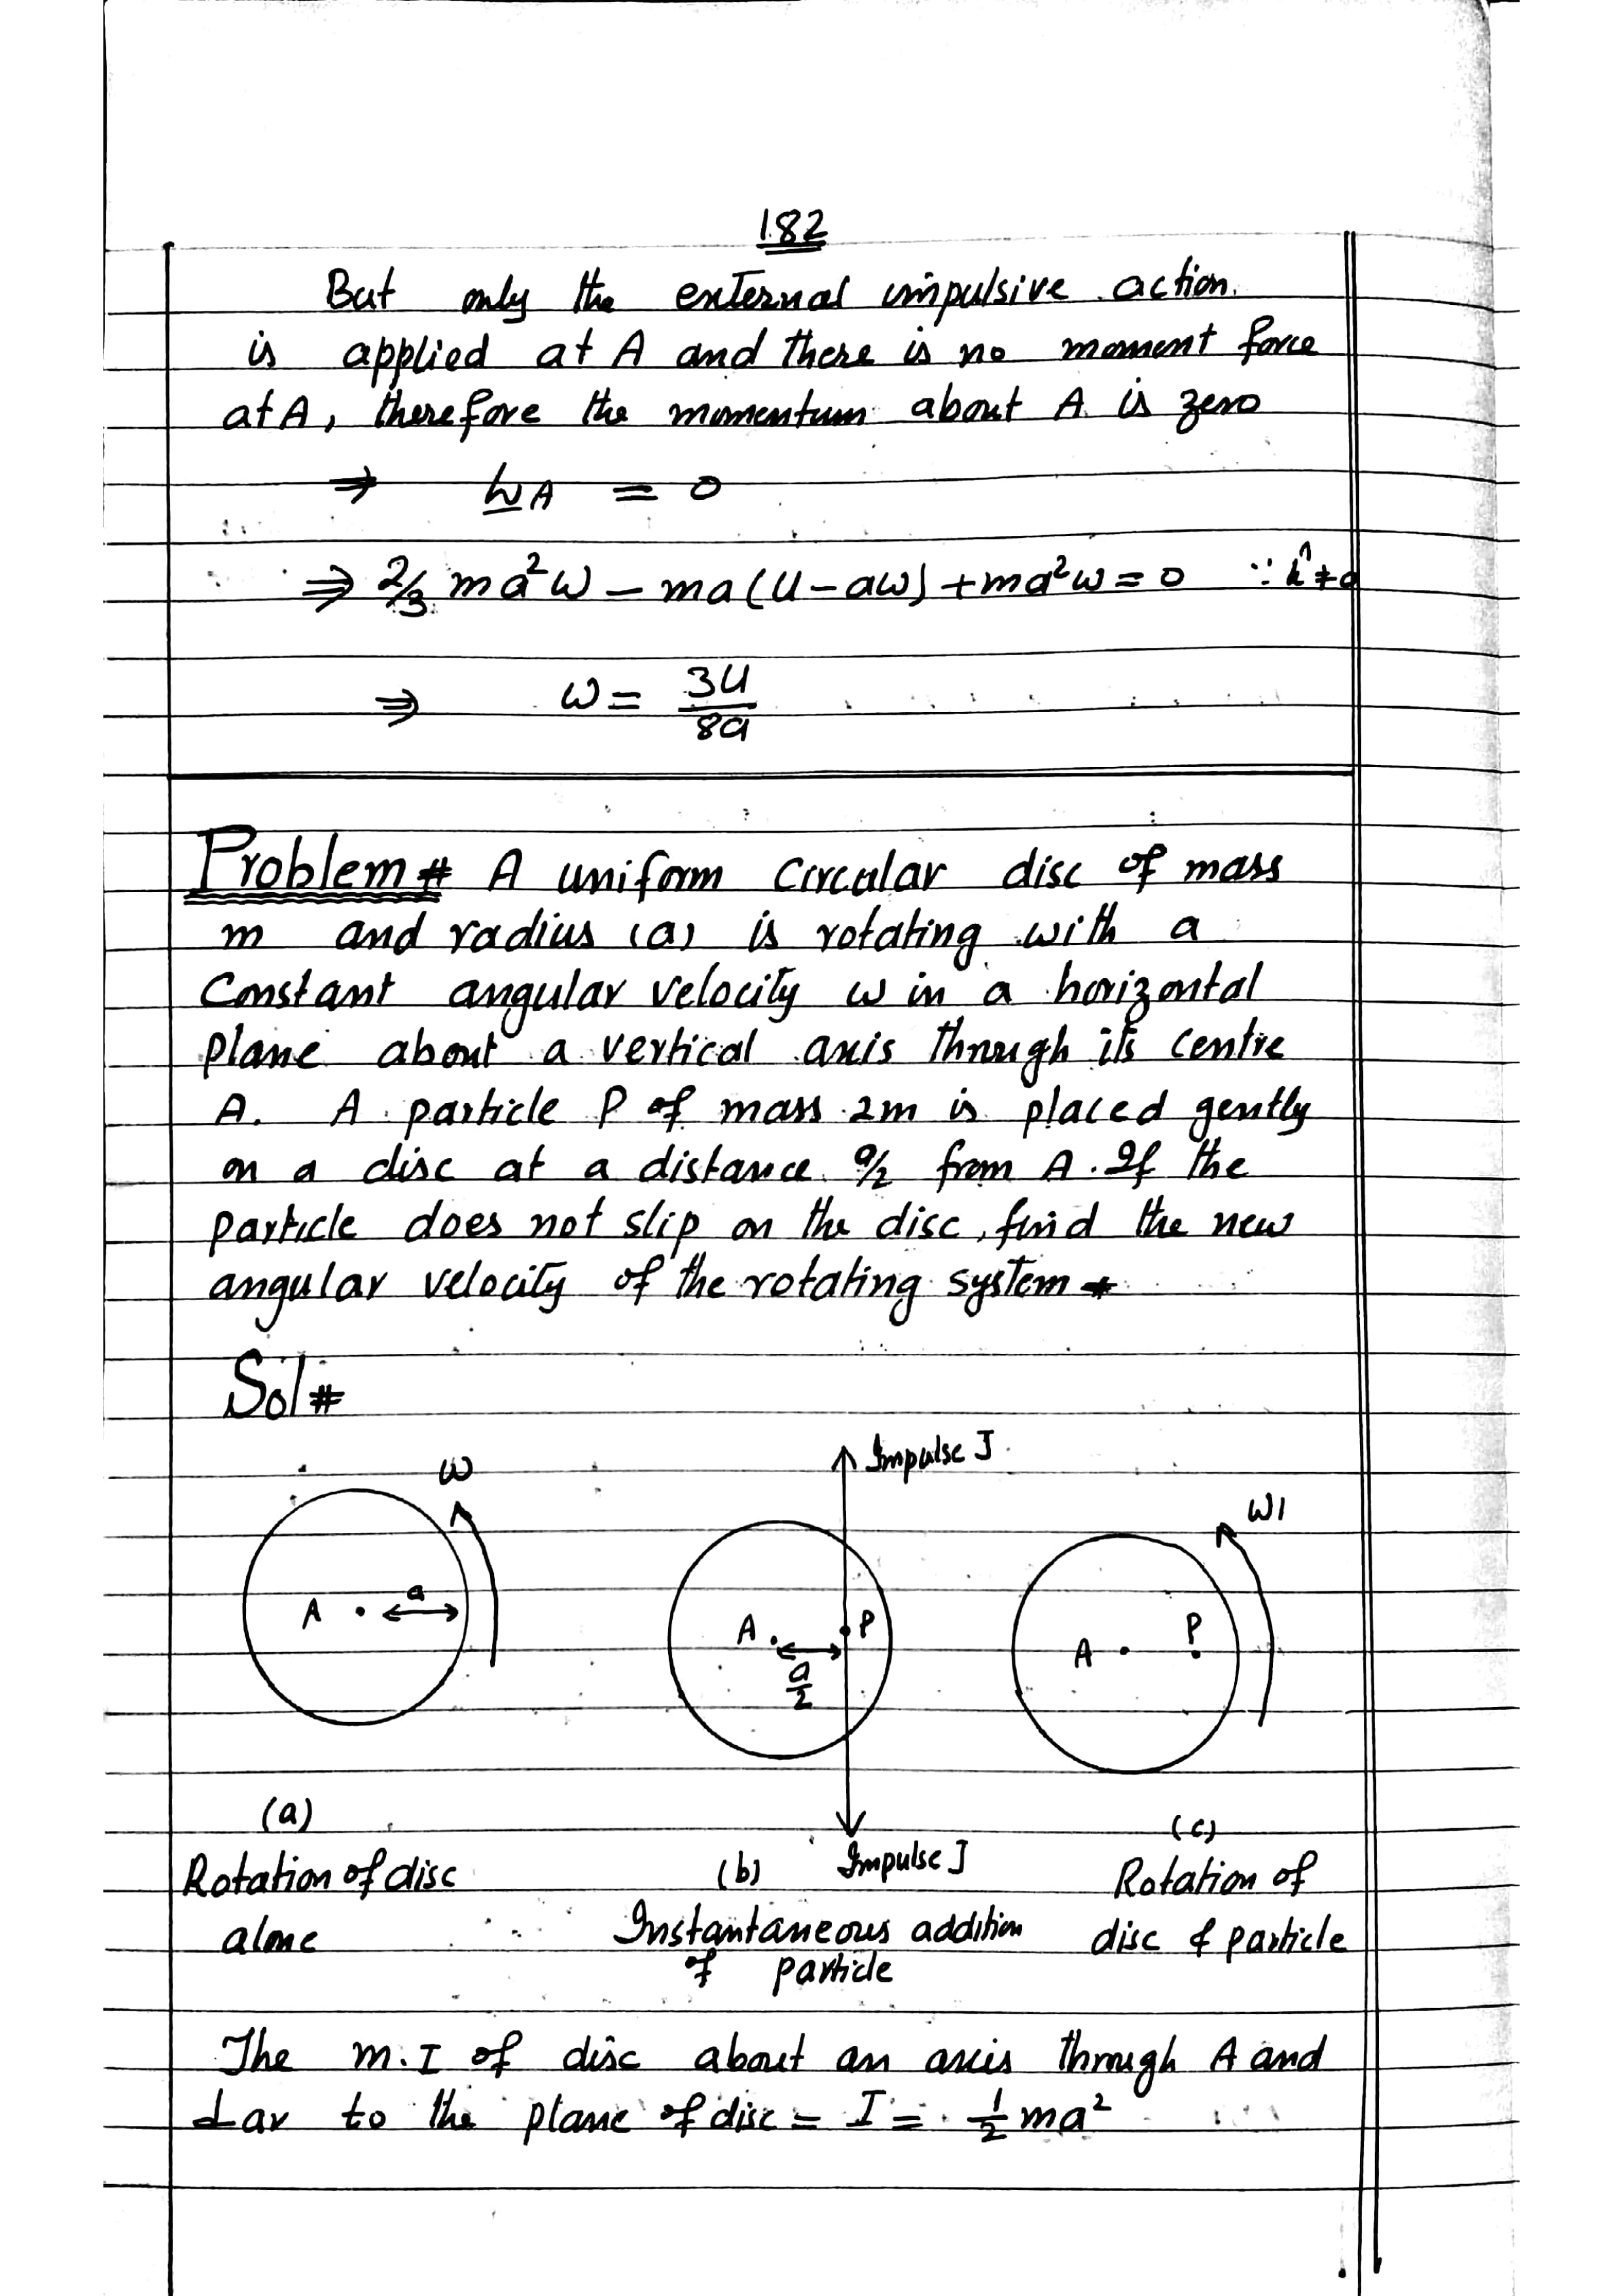 182
But only the external impulsive action.
is applied at A and there is no moment force
at A, therefore the momentum about A is zero
⇒ h_A = 0
⇒ 2/3 ma²ω - ma(U-aω) + ma²ω = 0 ∵ k̂ ≠ 0
⇒ ω = 3U/8a
Problem# A uniform circular disc of mass
m and radius (a) is rotating with a
Constant angular velocity ω in a horizontal
plane about a vertical axis through its centre
A. A particle P of mass 2m is placed gently
on a disc at a distance a/2 from A. If the
particle does not slip on the disc, find the new
angular velocity of the rotating system
Sol#
ω
A a
(a)
Rotation of disc
alone
Impulse J
A P
a/2
Impulse J
(b)
Instantaneous addition
of particle
ω1
A P
(c)
Rotation of
disc & particle
The m.I of disc about an axis through A and
⊥ar to the plane of disc = I = 1/2 ma²